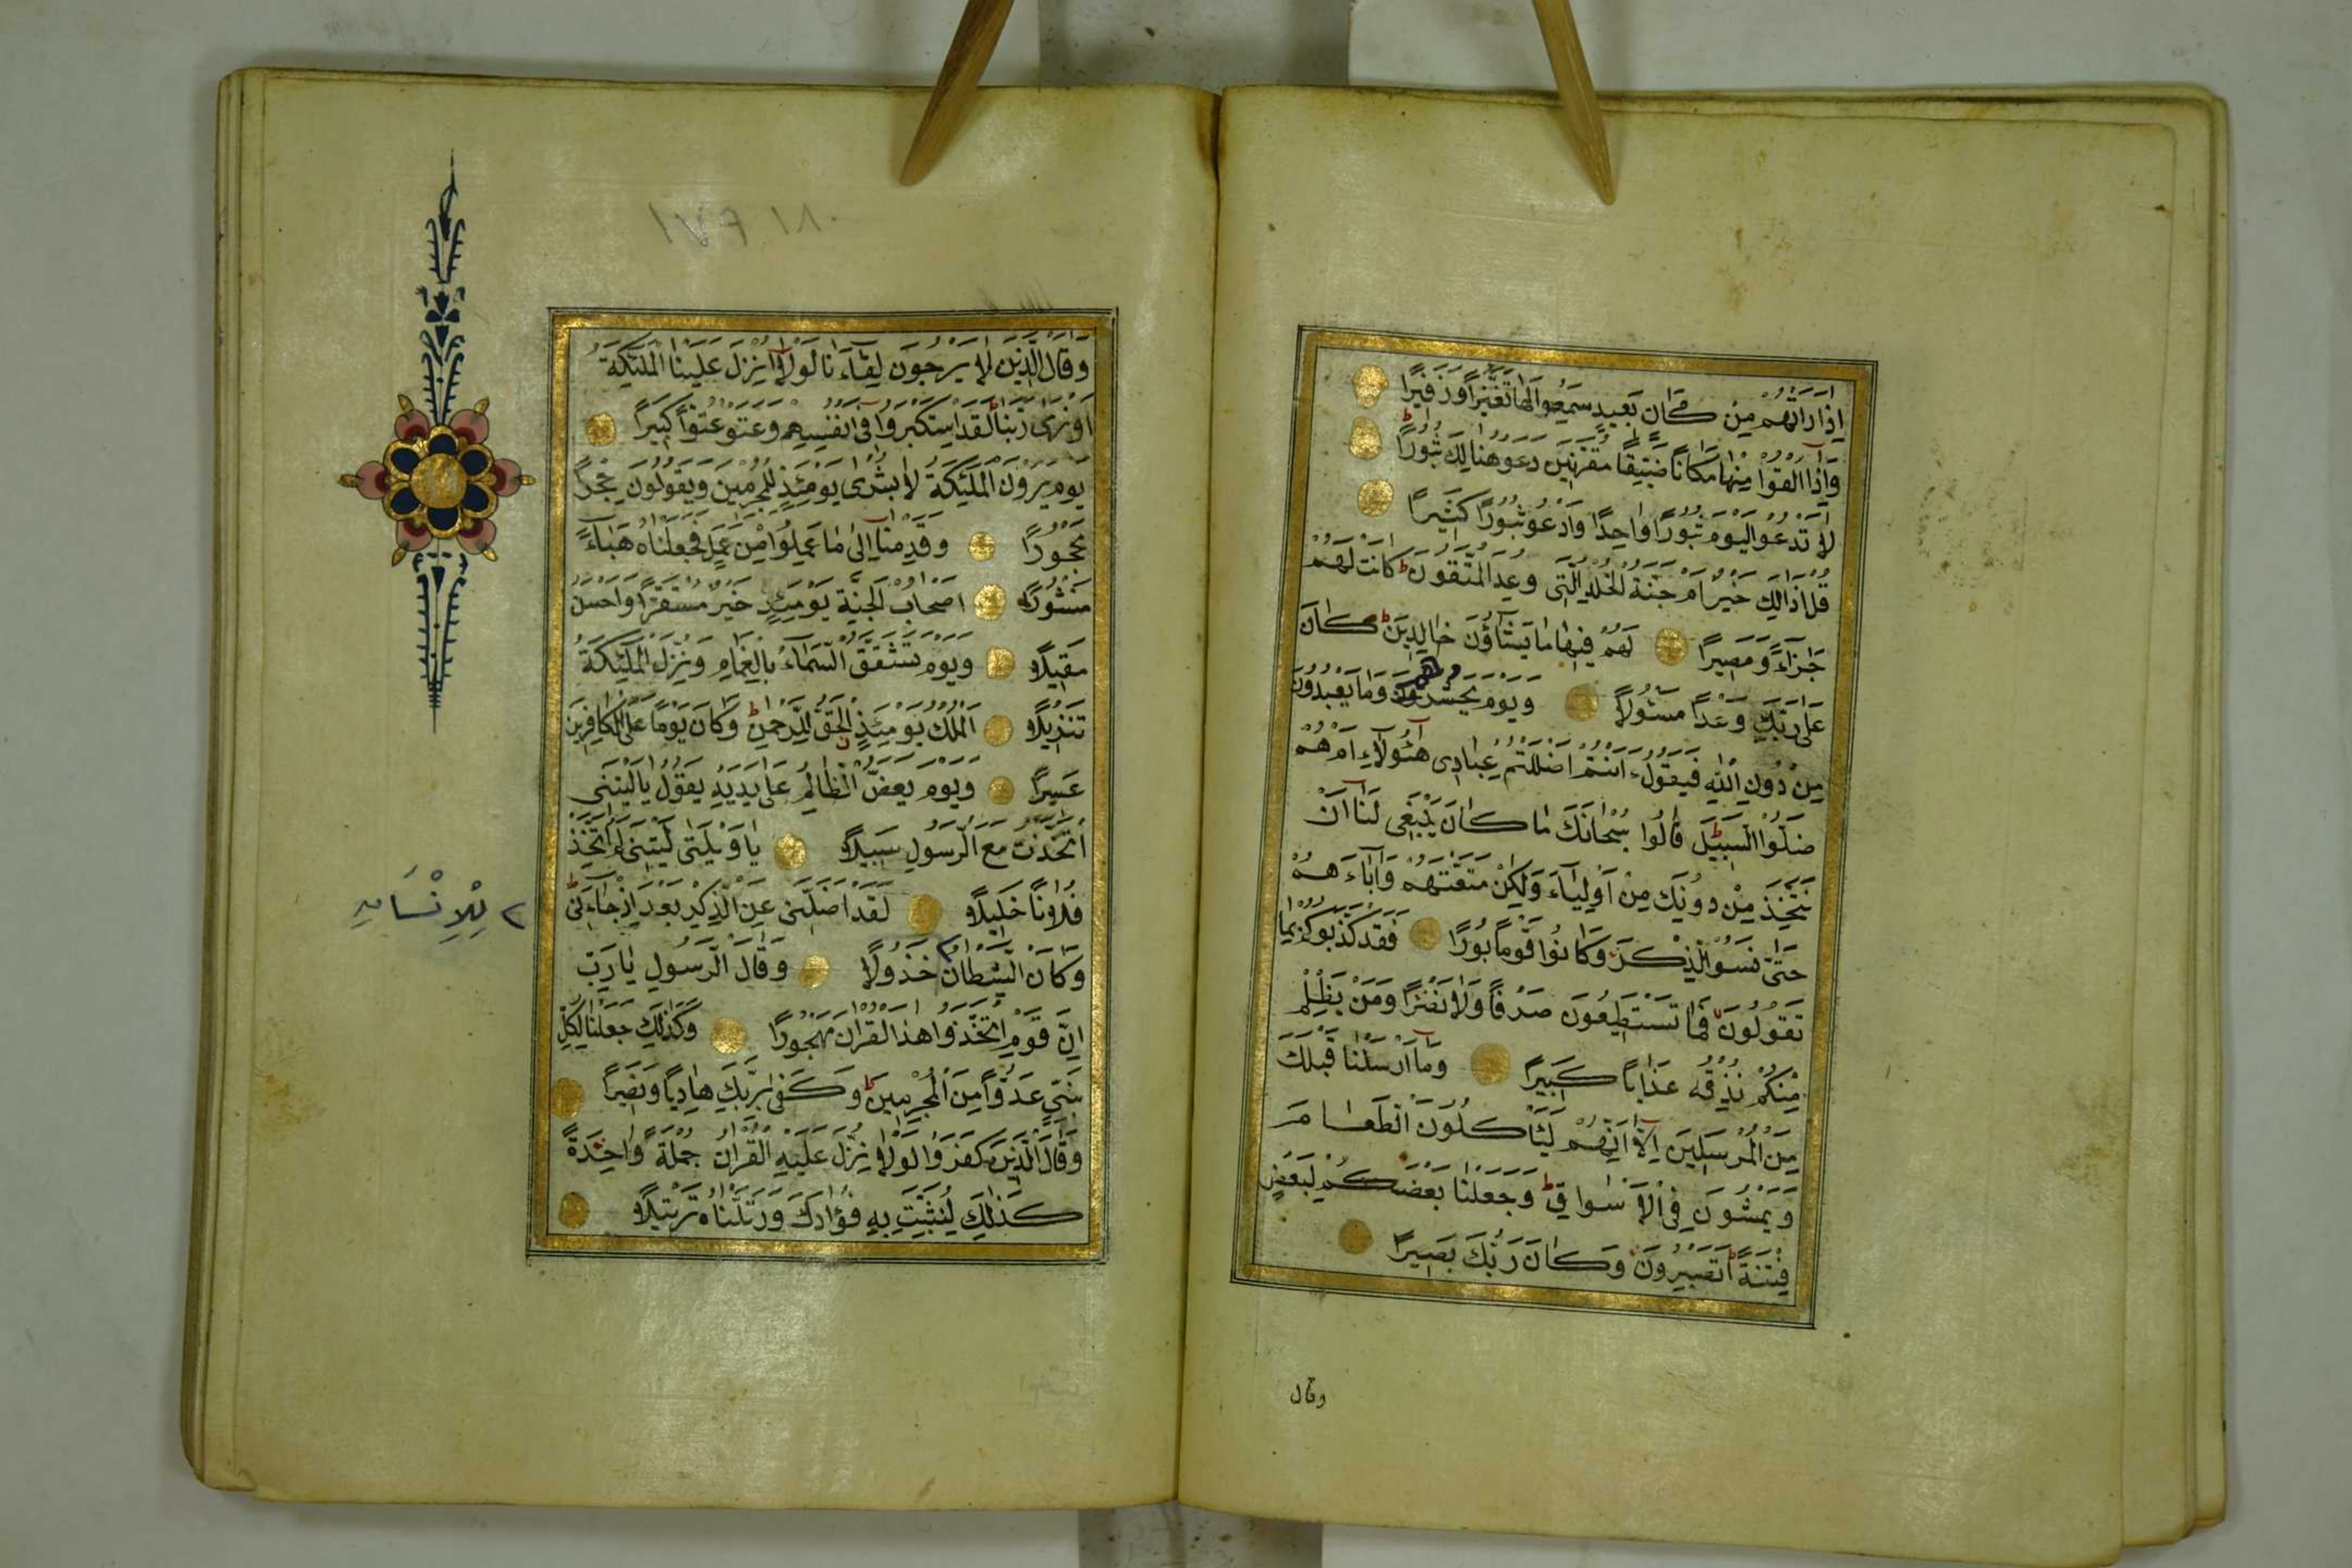 اِذَا رَاَتْهُمْ مِنْ مَكَانٍ بَعِيدٍ سَمِعُوا لَهَا تَغَيُّظًا وَزَفِيرًا
وَاِذَا اُلْقُوا مِنْهَا مَكَانًا ضَيِّقًا مُقَرَّنِينَ دَعَوْا هُنَالِكَ ثُبُورًا
لَا تَدْعُوا الْيَوْمَ ثُبُورًا وَاحِدًا وَادْعُوا ثُبُورًا كَثِيرًا
قُلْ اَذَالِكَ خَيْرٌ اَمْ جَنَّةُ الْخُلْدِ الَّتِى وُعِدَ الْمُتَّقُونَ ط كَانَتْ لَهُمْ
جَزَاءً وَمَصِيرًا لَهُمْ فِيهَا مَا يَشَاؤُنَ خَالِدِينَ ط كَانَ
عَلَى رَبِّكَ وَعْدًا مَسْئُولًا وَيَوْمَ يَحْشُرُهُمْ وَمَا يَعْبُدُونَ
مِنْ دُونِ اللّٰهِ فَيَقُولُ ءَاَنْتُمْ اَضْلَلْتُمْ عِبَادِى هٰؤُلَاءِ اَمْ هُمْ
ضَلُّوا السَّبِيلَ ط قَالُوا سُبْحَانَكَ مَا كَانَ يَنْبَغِى لَنَا اَنْ
نَتَّخِذَ مِنْ دُونِكَ مِنْ اَوْلِيَاءَ وَلٰكِنْ مَتَّعْتَهُمْ وَاٰبَاءَهُمْ
حَتّٰى نَسُوا الذِّكْرَ وَكَانُوا قَوْمًا بُورًا فَقَدْ كَذَّبُوكُمْ بِمَا
تَقُولُونَ فَمَا تَسْتَطِيعُونَ صَرْفًا وَلَا نَصْرًا وَمَنْ يَظْلِمْ
مِنْكُمْ نُذِقْهُ عَذَابًا كَبِيرًا وَمَا اَرْسَلْنَا قَبْلَكَ
مِنَ الْمُرْسَلِينَ اِلَّا اِنَّهُمْ لَيَأْكُلُونَ الطَّعَامَ
وَيَمْشُونَ فِى الْاَسْوَاقِ ط وَجَعَلْنَا بَعْضَكُمْ لِبَعْضٍ
فِتْنَةً ط اَتَصْبِرُونَ وَكَانَ رَبُّكَ بَصِيرًا
وقال
١٨٠
١٧٩
وَقَالَ الَّذِينَ لَا يَرْجُونَ لِقَاءَنَا لَوْلَا اُنْزِلَ عَلَيْنَا الْمَلٰئِكَةُ
اَوْ نَرٰى رَبَّنَا ط لَقَدِ اسْتَكْبَرُوا فِى اَنْفُسِهِمْ وَعَتَوْ عُتُوًّا كَبِيرًا
يَوْمَ يَرَوْنَ الْمَلٰئِكَةَ لَا بُشْرٰى يَوْمَئِذٍ لِلْمُجْرِمِينَ وَيَقُولُونَ حِجْرًا
مَحْجُورًا وَقَدِمْنَا اِلٰى مَا عَمِلُوا مِنْ عَمَلٍ فَجَعَلْنَاهُ هَبَاءً
مَنْثُورًا اَصْحَابُ الْجَنَّةِ يَوْمَئِذٍ خَيْرٌ مُسْتَقَرًّا وَاَحْسَنُ
مَقِيلًا وَيَوْمَ تَشَقَّقُ السَّمَاءُ بِالْغَمَامِ وَنُزِّلَ الْمَلٰئِكَةُ
تَنْزِيلًا اَلْمُلْكُ يَوْمَئِذٍ الْحَقُّ لِلرَّحْمٰنِ ط وَكَانَ يَوْمًا عَلَى الْكَافِرِينَ
عَسِيرًا وَيَوْمَ يَعَضُّ الظَّالِمُ عَلٰى يَدَيْهِ يَقُولُ يَا لَيْتَنِى
اتَّخَذْتُ مَعَ الرَّسُولِ سَبِيلًا يَا وَيْلَتٰى لَيْتَنِى لَمْ اَتَّخِذْ
فُلَانًا خَلِيلًا لَقَدْ اَضَلَّنِى عَنِ الذِّكْرِ بَعْدَ اِذْ جَاءَنِى ط
وَكَانَ الشَّيْطَانُ ٢ خَذُولًا وَقَالَ الرَّسُولُ يَا رَبِّ
اِنَّ قَوْمِى اتَّخَذُوا هٰذَا الْقُرْاٰنَ مَهْجُورًا وَكَذٰلِكَ جَعَلْنَا لِكُلِّ
نَبِىٍّ عَدُوًّا مِنَ الْمُجْرِمِينَ ط وَكَفٰى بِرَبِّكَ هَادِيًا وَنَصِيرًا
وَقَالَ الَّذِينَ كَفَرُوا لَوْلَا نُزِّلَ عَلَيْهِ الْقُرْاٰنُ جُمْلَةً وَاحِدَةً
كَذٰلِكَ لِنُثَبِّتَ بِهِ فُؤَادَكَ وَرَتَّلْنَاهُ تَرْتِيلًا
٢ لِلْاِنْسَانِ